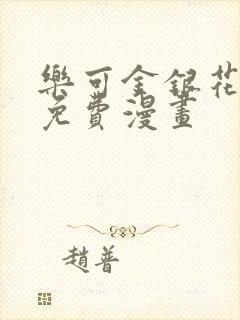 樂可金銀花
免費漫畫
趙普